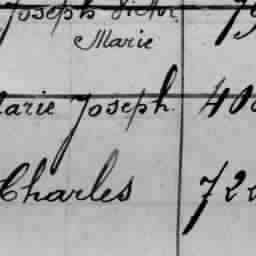 Joseph Victor 79
Marie
Marie Joseph. 40
Charles 72